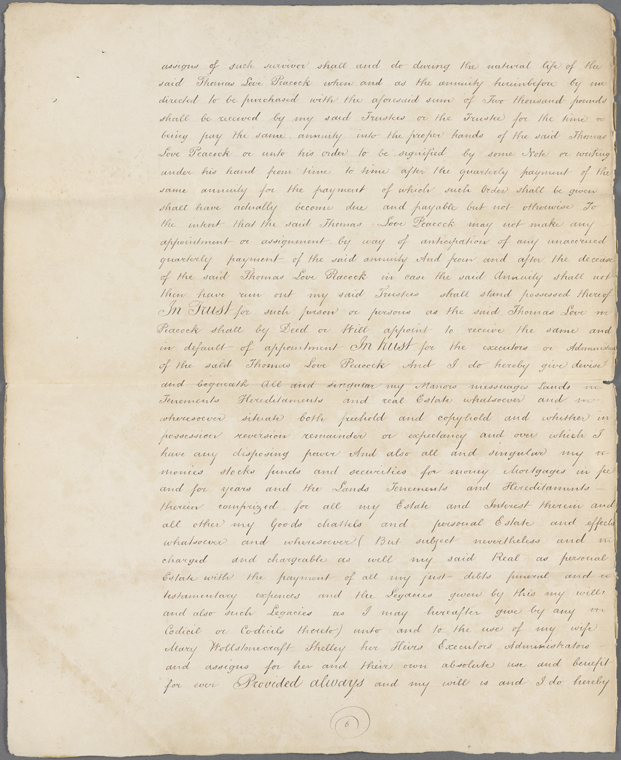 assigns of such survivor shall and do during the natural life of the
said Thomas Love Peacock when and as the annuity hereinbefore by me
directed to be purchased with the aforesaid sum of Two thousand pounds
shall be received by my said Trustees or the Trustee for the time
being pay the same annuity into the proper hands of the said Thomas
Love Peacock or unto his order to be signified by some Note or writing
under his hand from time to time after the quarterly payment of the
same annuity for the payment of which such Order shall be given
shall have actually become due and payable but not otherwise To
the intent that the said Thomas Love Peacock may not make any
appointment or assignment by way of anticipation of any unaccrued
quarterly payment of the said annuity And from and after the decease
of the said Thomas Love Peacock in case the said Annuity shall not
then have run out my said Trustees shall stand possessed thereof
In Trust for such person or persons as the said Thomas Love
Peacock shall by Deed or Will appoint to receive the same and
in default of appointment In trust for the executors or
of the said Thomas Love Peacock And I do hereby give devise
and bequeath All and singular my Manors messuages Lands
Tenements Hereditaments and real Estate whatsoever and
wheresoever situate both freehold and copyhold and whether in
possession reversion remainder or expectancy and over which I
have any disposing power And also all and singular my
monies stocks funds and securities for money Mortgages in fee
and for years and the Lands Tenements and Hereditaments
therein comprized for all my Estate and Interest therein and
all other my Goods chattels and personal Estate and effects
whatsoever and wheresoever (But subject nevertheless and
charged and chargeable as well my said Real as personal
Estate with the payment of all my just debts funeral and
testamentary expences and the Legacies given by this my will
and also such Legacies as I may hereafter give by any
Codicil or Codicils thereto) unto and to the use of my wife
Mary Wollstonecraft Shelley her Heirs Executors Administrators
and assigns for her and their own absolute use and benefit
for ever Provided always and my will is and I do hereby
6